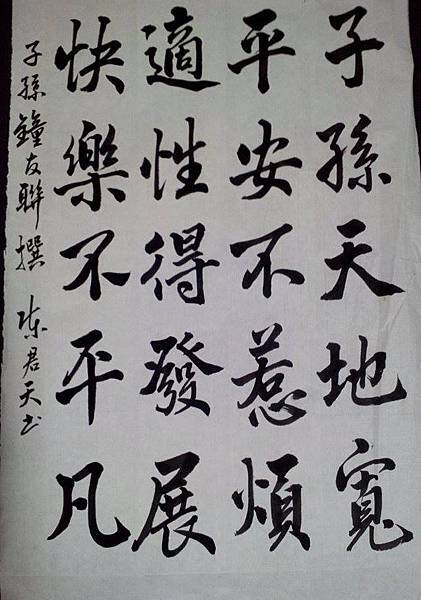 子孫天地寬
平安不惹煩
適性得發展
快樂不平凡
子孫鐘友聯撰 陳君天書